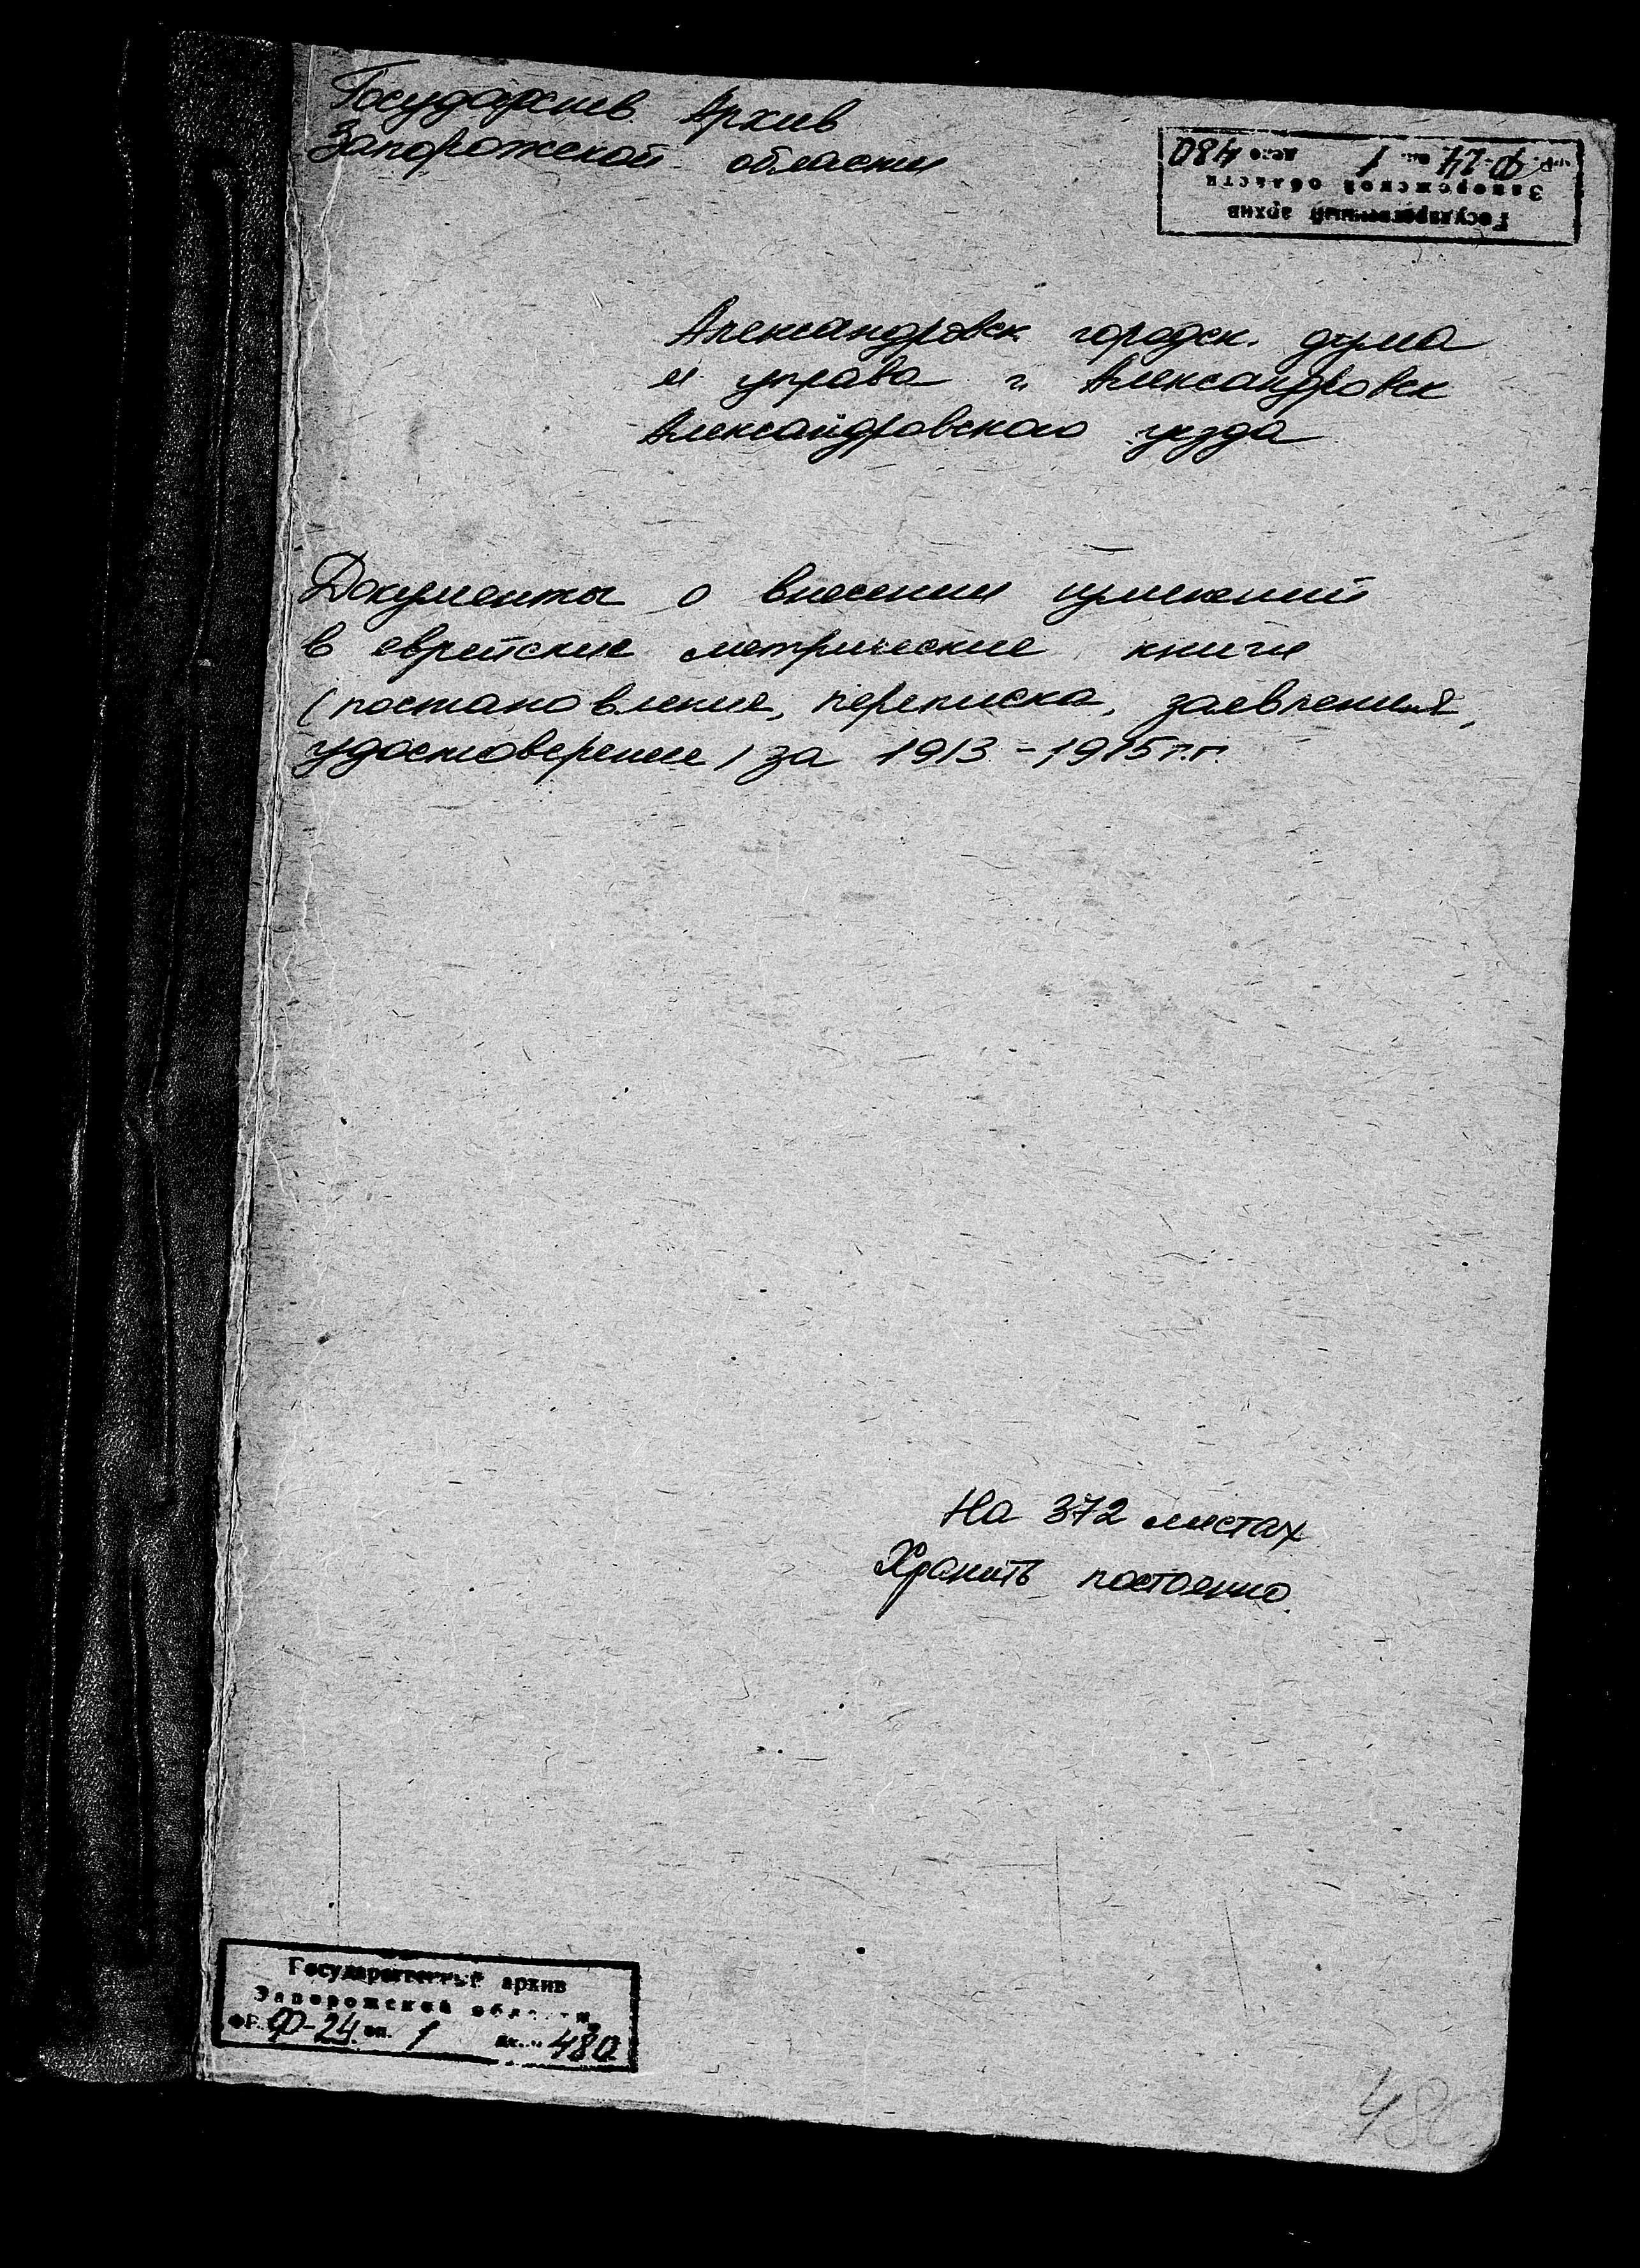 Государхив Архив
Запорожской области
Государственный архив
Запорожской области
Ф-24 оп. 1 дело 480
Александровск. городск. дума
и управа г. Александровск
Александровского уезда
Документы о внесении изменений
в еврейские метрические книги
(постановления, переписка, заявления,
удостоверения) за 1913-1915 г.г.
На 372 листах
Хранить постоянно.
Государственный архив
Запорожской области
Ф-24 оп. 1 480
480